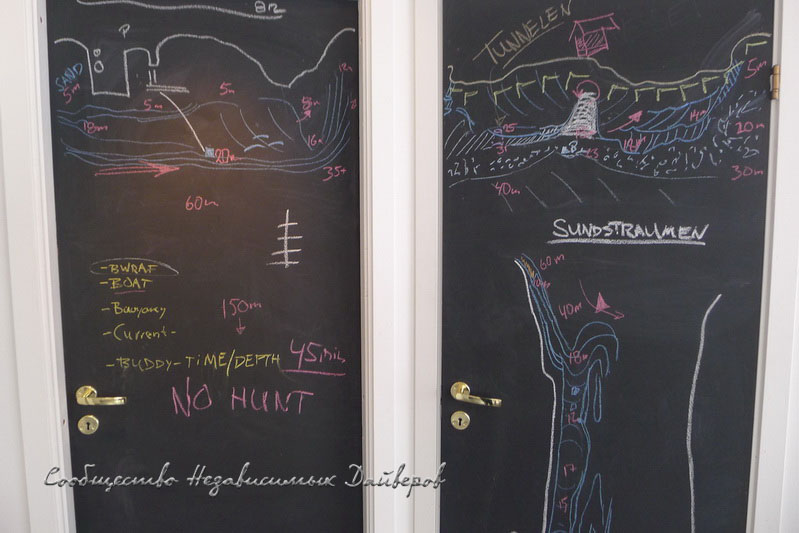 P
SAND
5m
5m
5m
18m
16m
20m
35+
60m
- BWRAF
- BOAT
- Buoyancy
- Current -
- BUDDY - TIME/DEPTH 45min
150m
NO HUNT
TUNNELEN
5m
14m
25
20m
30m
40m
SUNDSTRAUMEN
60m
40m
18m
12m
17
15
Сообщество Независимых Дайверов